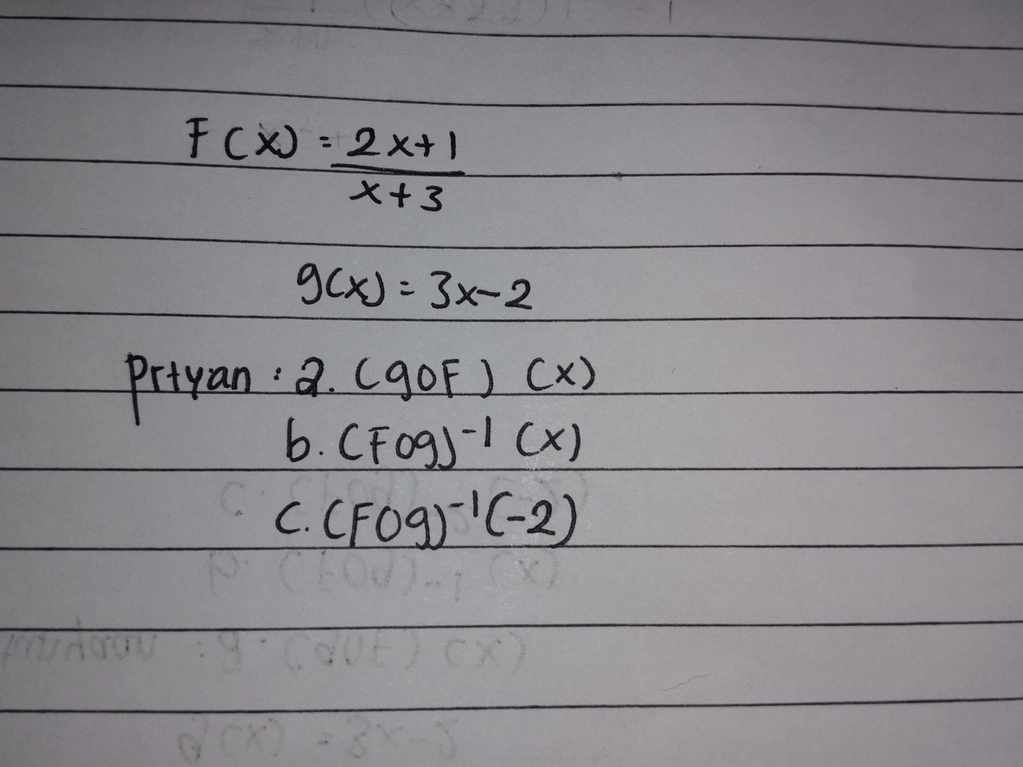 F(x) = 2x+1
x+3
g(x) = 3x-2
Prtyan : a. (goF) (x)
b. (Fog)-1 (x)
c. (Fog)-1(-2)